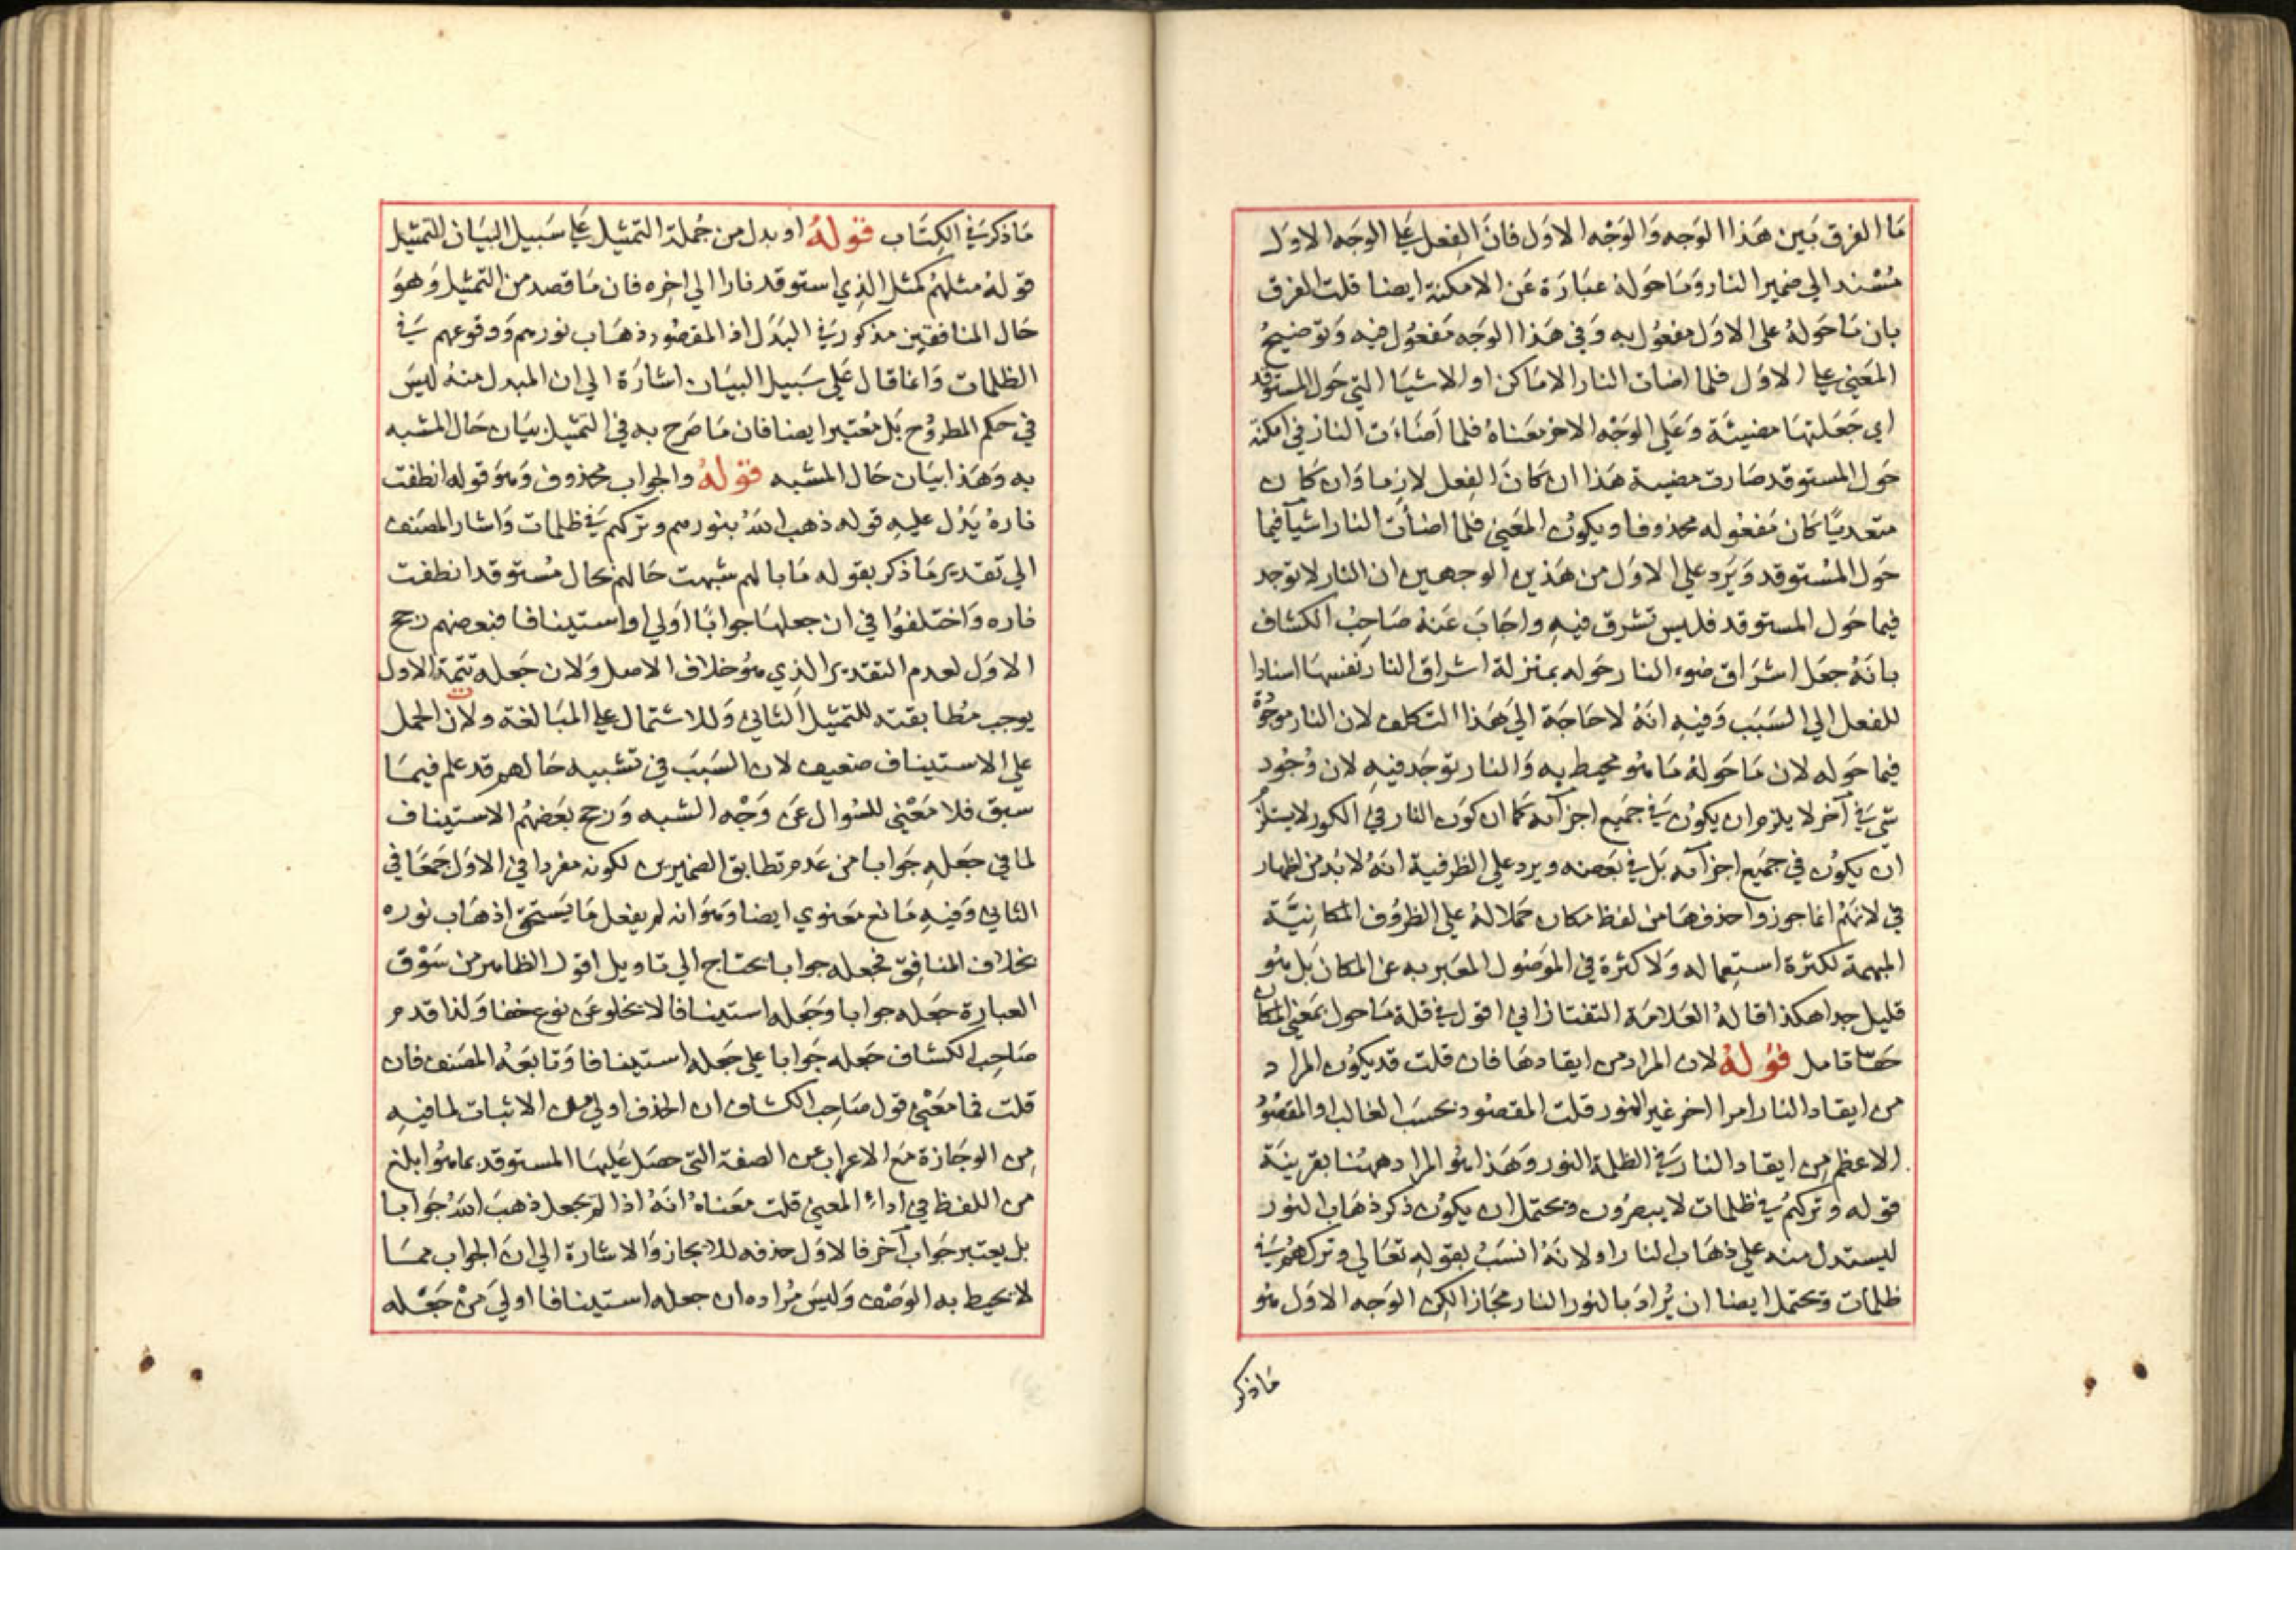 ما الفرق بين هذا الوجه والوجه الاول فان الفعل علي الوجه الاول
مسند الي ضمير النار وما حوله عبارة عن الامكنة ايضا قلت الفرق
بان ما حوله علي الاول مفعول به وفي هذا الوجه مفعول فيه وتوضيح
المعني علي الاول فلما اضات النار الاماكن او الاشيا التي حول المستوقد
اي جعلتها مضيئة وعلي الوجه الاخر معناه فلما اضاءت النار في امكنة
حول المستوقد صارت مضيئة هذا ان كان الفعل لازما وان كان
متعديا كان مفعوله محذوفا ويكون المعني فلما اضأت النار اشيآ فيما
حول المستوقد ويرد علي الاول من هذين الوجهين ان النار لا توجد
فيما حول المستوقد فليس تشرق فيه واجاب عنه صاحب الكشاف
بانه جعل اشراق ضوء النار حوله بمنزلة اشراق النار نفسها اسنادا
للفعل الي السبب وفيه انه لا حاجة الي هذا التكلف لان النار موجودة
فيما حوله لان ما حوله ما هو محيط به والنار توجد فيه لان وجود
شي في آخر لا يلزم ان يكون في جميع اجزآئه كما ان كون النار في الكور لا يستلزم
ان يكون في جميع اجزآئه بل في بعضه ويرد علي الظرفية انه لا بد من اظهار
في لانهم انما جوزوا حذفها من لفظ مكان حملا له علي الظروف المكانية
المبهمة لكثرة استعماله ولا كثرة في الموصول المعبر به عن المكان بل هو
قليل جدا هكذا قاله العلامة التفتازاني اقول في قلة ما حول بمعني المكان
خفا تامل قوله لان المراد من ايقادها فان قلت قد يكون المراد
من ايقاد النار امرا اخر غير النور قلت المقصود بحسب الغالب او المقصود
الاعظم من ايقاد النار في الظلمة النور وهذا هو المراد ههنا بقرينة
قوله وتركهم في ظلمات لا يبصرون ويحتمل ان يكون ذكر ذهاب النور
ليستدل منه علي ذهاب النار او لانه انسب بقوله تعالي وتركهم في
ظلمات ويحتمل ايضا ان يراد بالنور النار مجازا لكن الوجه الاول هو
ماذكر
ماذكر في الكتاب قوله او بدل من جملة التمثيل علي سبيل البيان التمثيل
قوله مثلهم كمثل الذي استوقد نارا الي اخره فان ما قصد من التمثيل وهو
حال المنافقين مذكور في البدل اذ المقصود ذهاب نورهم ووقوعهم في
الظلمات وانما قال علي سبيل البيان اشارة الي ان المبدل منه ليس
في حكم المطروح بل معتبر ايضا فان ما صرح به في التمثيل بيان حال المشبه
به وهذا بيان حال المشبه قوله والجواب محذوف وهو قوله انطفت
ناره يدل عليه قوله ذهب الله بنورهم وتركهم في ظلمات واشار المصنف
الي تقدير ما ذكر بقوله ما بالهم شبهت حالهم بحال مستوقد انطفت
ناره واختلفوا في ان جعلها جوابا اولي او استينافا فبعضهم رجح
الاول لعدم التقدير الذي هو خلاف الاصل ولان جعله تتمة الاول
يوجب مطابقته للتمثيل الثاني وللاشتمال علي المبالغة ولان الحمل
علي الاستيناف ضعيف لان السبب في تشبيه حالهم قد علم فيما
سبق فلا معني للسوال عن وجه الشبه ورجح بعضهم الاستيناف
لما في جعله جوابا من عدم تطابق الضميرين لكونه مفردا في الاول جمعا في
الثاني وفيه مانع معنوي ايضا وهو انه لم يفعل ما يستحق اذهاب نوره
بخلاف المنافق فجعله جوابا يحتاج الي تاويل اقول الظاهر من سوق
العبارة جعله جوابا وجعله استينافا لا يخلو عن نوع خفا ولذا قدم
صاحب الكشاف جعله جوابا علي جعله استينافا وتابعه المصنف فان
قلت فما معني قول صاحب الكشاف ان الحذف اولي من الاثبات لما فيه
من الوجازة مع الاعراب عن الصفة التي حصل عليها المستوقد بما هو ابلغ
من اللفظ في اداء المعني قلت معناه انه اذا لم يجعل ذهب الله جوابا
بل يعتبر جواب آخر فالاول حذفه للايجاز والاشارة الي ان الجواب مما
لا يحيط به الوصف وليس مراده ان جعله استينافا اولي من جعله